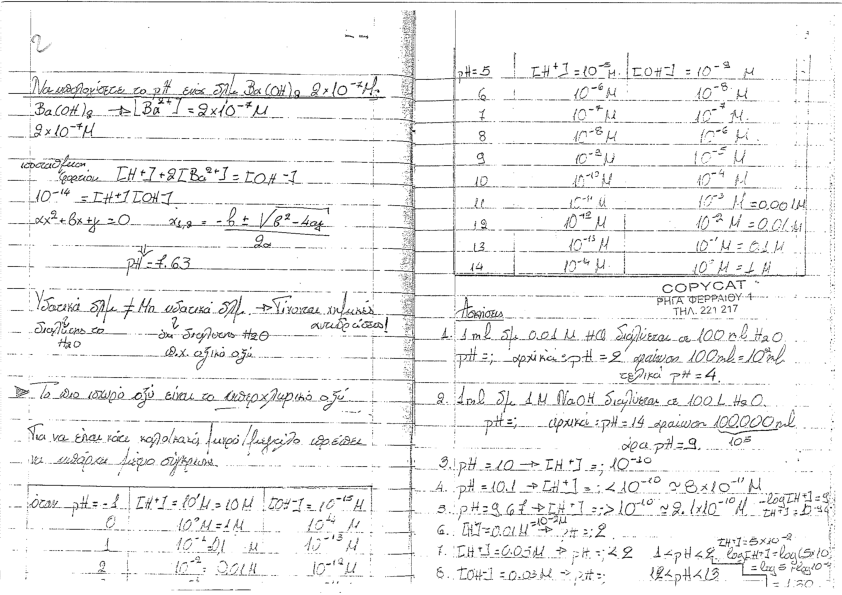 2
Να υπολογίσετε το pH ενός δ/μ. Ba(OH)2 2×10⁻⁷M.
Ba(OH)2 → [Ba²⁺] = 2×10⁻⁷M
2×10⁻⁷M
ισοστάθμιση
φορτίου [H+]+2[Ba²⁺]=[OH-]
10⁻¹⁴ = [H+][OH-]
αx²+βx+γ=0 x₁,₂ = -β ± √β²-4αγ
2α
pH=7.63
Υδατικά δ/μ ≠ Μη υδατικά δ/μ. → Γίνονται χημικές
διαλύτης το αντιδράσεις!
H2O
π.χ. οξικό οξύ
Το πιο ισχυρό οξύ είναι το υπερχλωρικό οξύ
Για να είναι κάτι καλό/κακό, μικρό/μεγάλο πρέπει
να υπάρχει μέτρο σύγκρισης.
όταν pH=-1 [H+]=10¹M=10M [OH-]=10⁻¹⁵M
0 10⁰M=1M
1 10⁻¹ M 10⁻¹³M
2 10⁻² = 0.01M 10⁻¹²M
pH=5 [H+]=10⁻⁵M [OH-]=10⁻⁹ M
6 10⁻⁶M 10⁻⁸M
7 10⁻⁷M 10⁻⁷M
8 10⁻⁸M 10⁻⁶M
9 10⁻⁹M 10⁻⁵M
10 10⁻¹⁰M 10⁻⁴M
11 10⁻¹¹M 10⁻³M =0.001M
12 10⁻¹²M 10⁻²M =0.01M
13 10⁻¹³M 10⁻¹M = 0.1M
14 10⁰M = 1M
COPYCAT
ΡΗΓΑ ΦΕΡΡΑΙΟΥ 1
ΤΗΛ. 221 217
Ασκήσεις
1. 1ml δ/μ 0.01M HCl διαλύεται σε 100ml H2O
pH=; αρχικά: pH=2 αραίωση 100ml=10²ml
τελικά pH=4.
2. 1ml δ/μ 1M NaOH διαλύεται σε 100L H2O.
pH=; αρχικά: pH=14 αραίωση 100.000ml
άρα pH=9. 10⁵
3. pH=10 → [H+]=; 10⁻¹⁰
4. pH=10.1 → [H+]=; <10⁻¹⁰ ≃ 8×10⁻¹¹M
5. pH=9.67 → [H+]=; >10⁻¹⁰ ≃ 2.1×10⁻¹⁰M -log[H+]=9
6. [H+]=0.01M =10⁻²M → pH=; 2
7. [H+]=0.05M → pH=; <2 1<pH<2 [H+]=5×10⁻²
8. [OH-]=0.03M → pH=; 12<pH<13
= 1.30